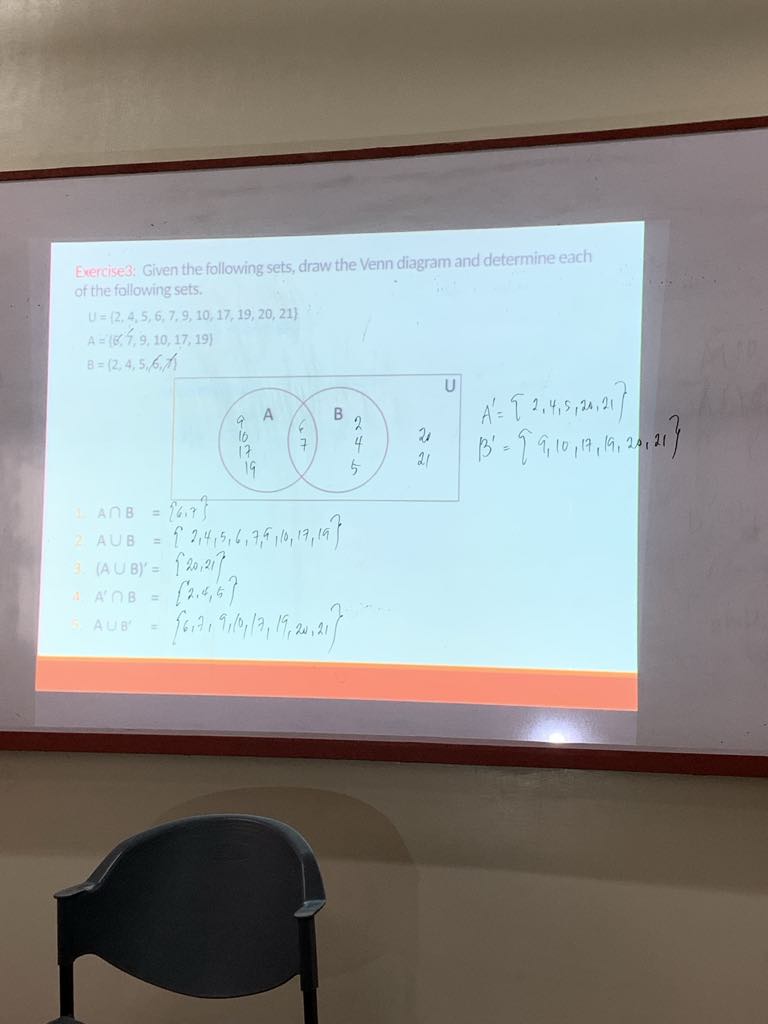 Exercise3: Given the following sets, draw the Venn diagram and determine each
of the following sets.
U = {2, 4, 5, 6, 7, 9, 10, 17, 19, 20, 21}
A = {6, 7, 9, 10, 17, 19}
B = {2, 4, 5, 6, 7}
U
A B
9 6 2
10 7 4 20
17 5 21
19
A' = { 2, 4, 5, 20, 21 }
B' = { 9, 10, 17, 19, 20, 21 }
1. A ∩ B = {6, 7}
2. A ∪ B = { 2, 4, 5, 6, 7, 9, 10, 17, 19 }
3. (A ∪ B)' = {20, 21}
4. A' ∩ B = {2, 4, 5}
5. A ∪ B' = {6, 7, 9, 10, 17, 19, 20, 21}